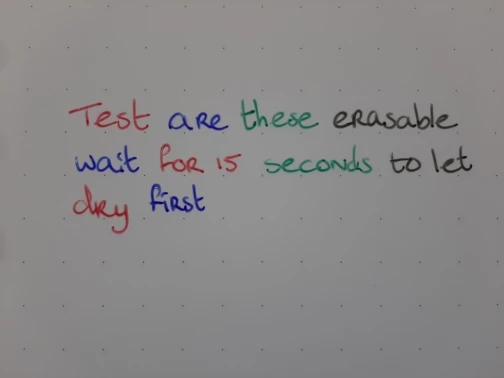 Test are these erasable
wait for 15 seconds to let
dry first